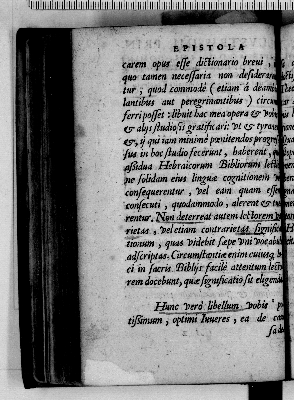 EPISTOLA
carem opus esse dictionario breui,
quo tamen necessaria non desiderare
tur, quod commodè (etiam à deam
lantibus aut peregrinantibus) circum
ferri posset: libuit hac mea opera &
& alijs studiosis gratificari: vt & tyrones
&, ij qui iam minimè pœnitendos progres
sus in hoc studio fecerunt, haberent,
assidua Hebraicorum Bibliorum lectio
ne solidam eius linguæ cognitionem
consequerentur, vel eam quam essent
consecuti, quodammodo, alerent &
rentur. Non deterreat autem lectorem
rietas, vel etiam contrarietas significa
tionum, quas videbit sæpe vni vocabulo
adscriptas. Circumstantiæ enim cuiusq,
ci in sacris Biblijs facilè attentum lecto
rem docebunt, quæ significatio sit eligenda
Hunc verò libellum vobis
tissimum, optimi Iuuenes, ea de cau
sa